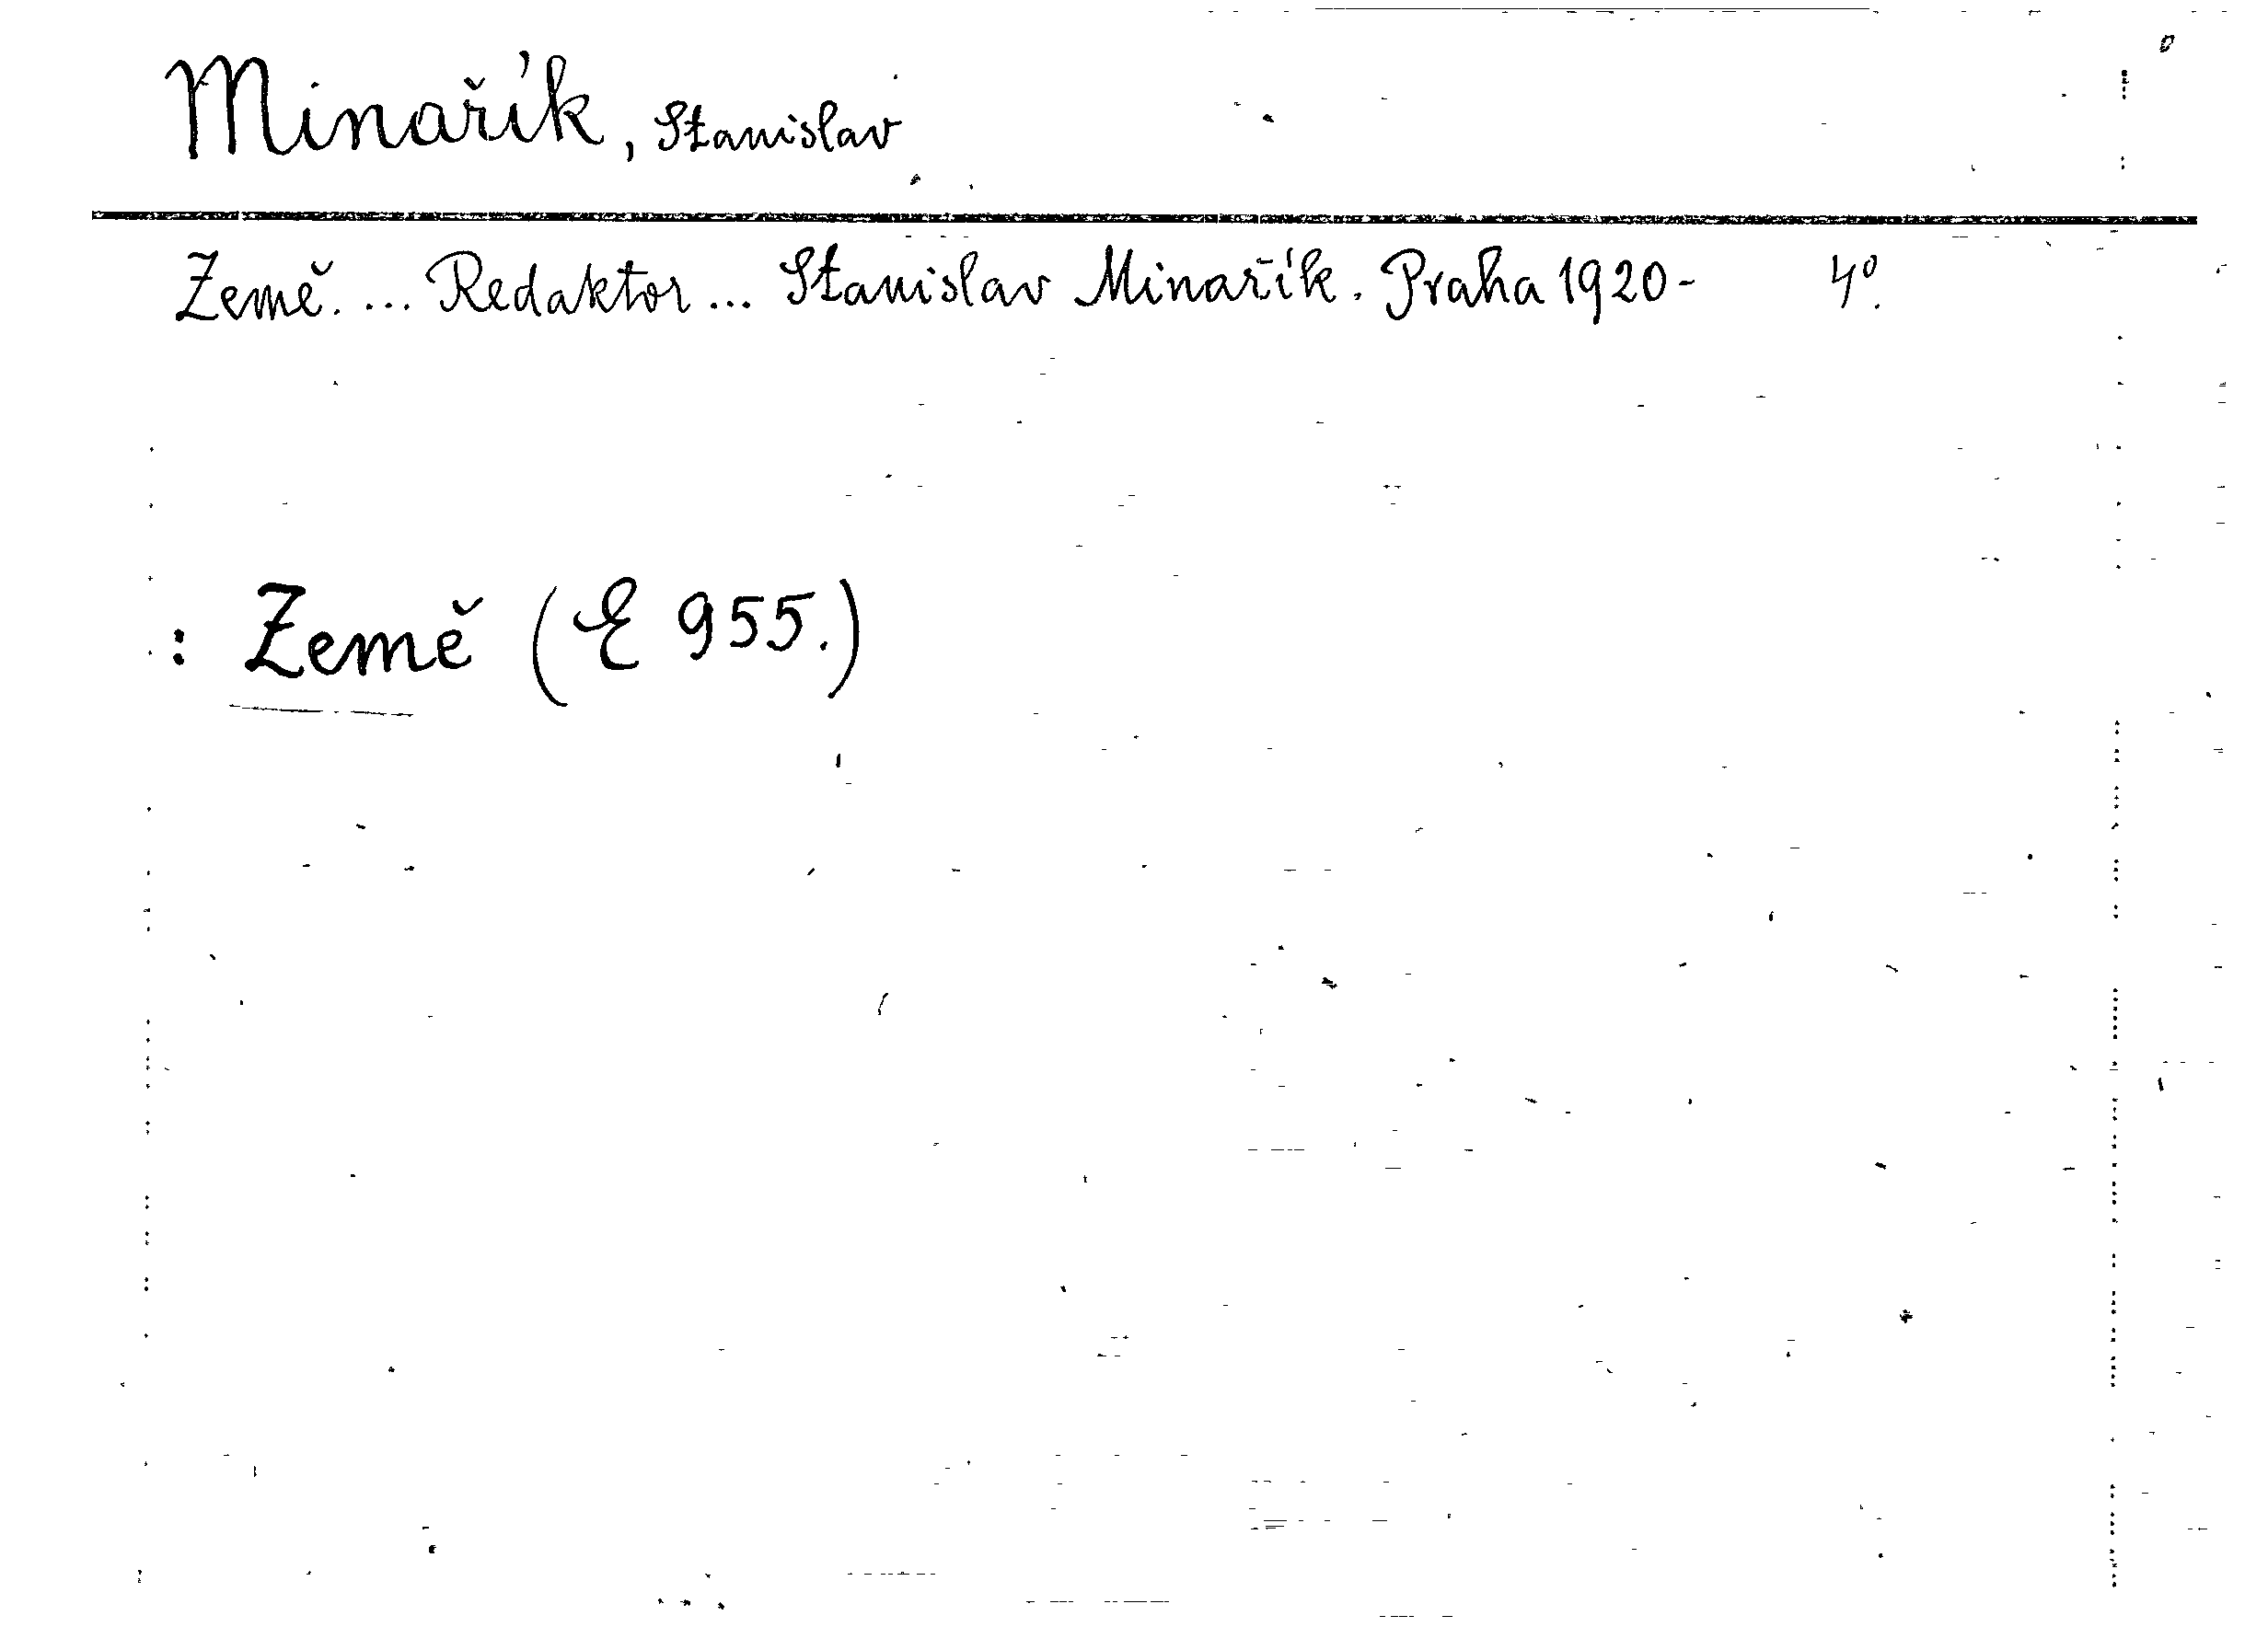 Minařík, Stanislav
Země. ... Redaktor ... Stanislav Minařík. Praha 1920- 4º.
: Země (E 955.)